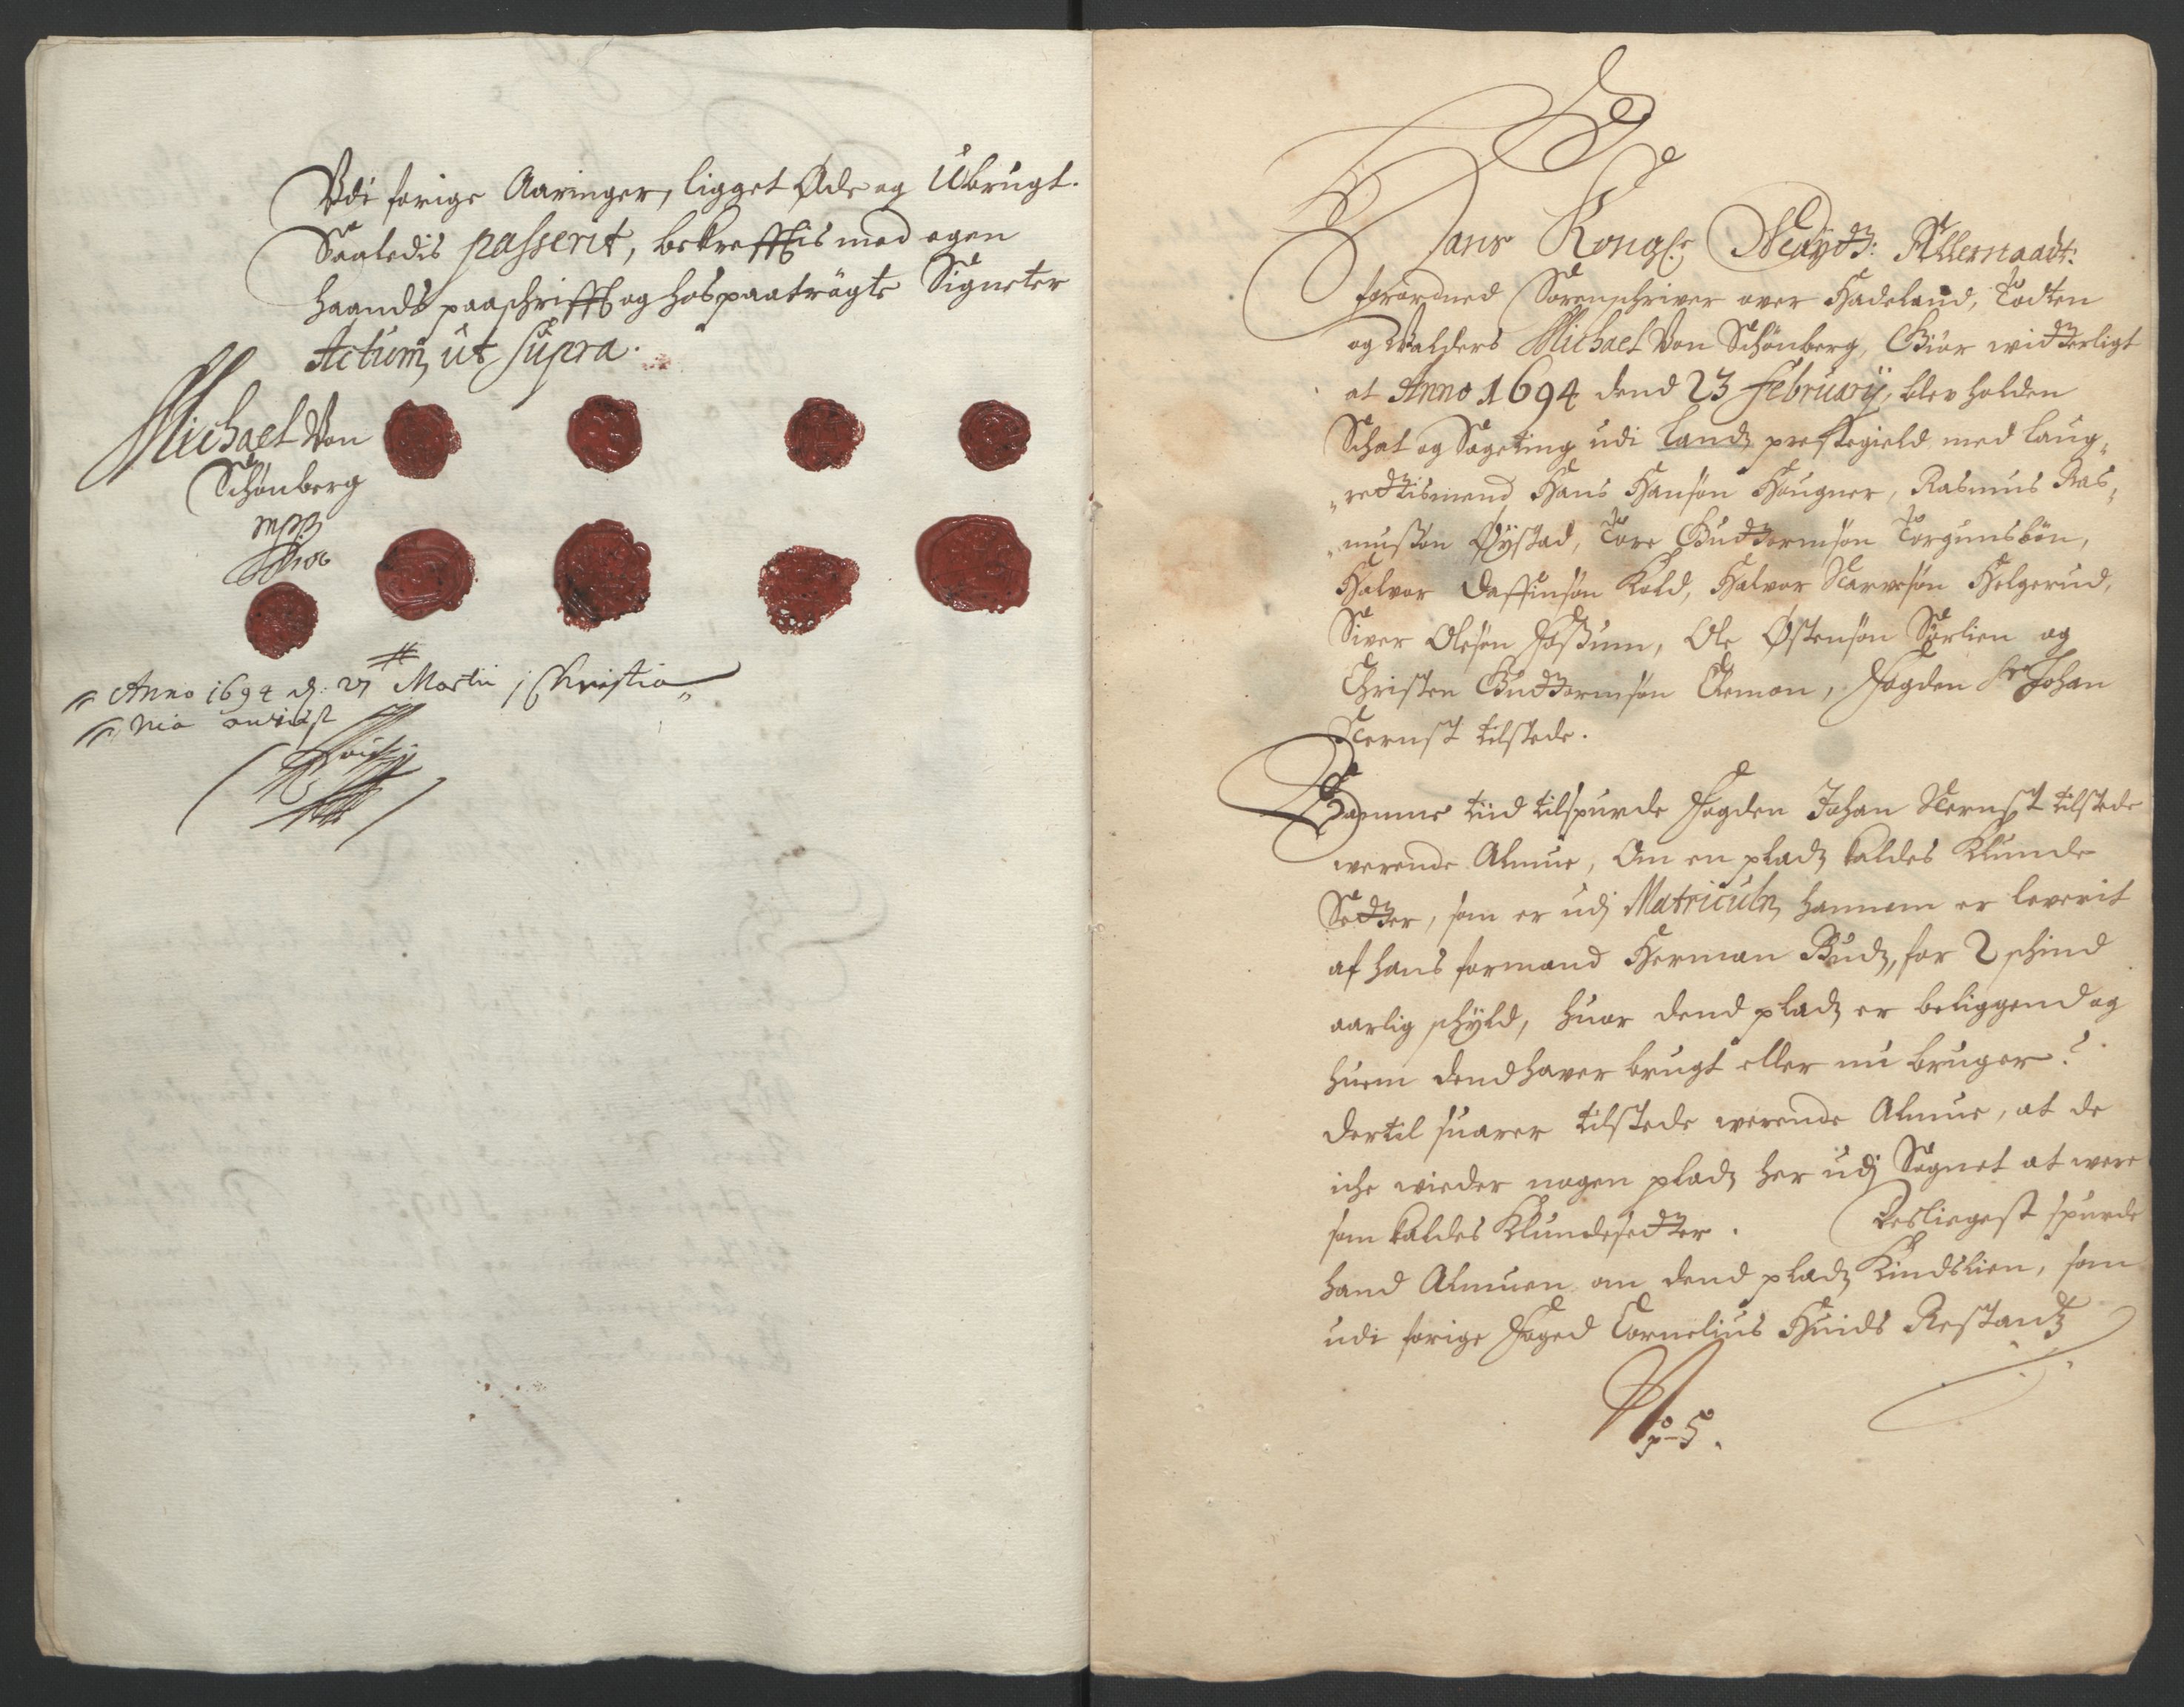 Udi forige Aaringer, ligget Øde og Ubrugt.
Saaledis passerit, bekrefftis med egen
haands paaschrifft og hos paatrögte Signeter
Actum ut supra.
Michael Von
Schönberg
mpp
Anno 1694 d: 27 Martii i Christia„
„nia
Hans Kongl: Mayttz: Allernaadt:
forordned Sorenschriver over Hadeland, Todten
og Walders Michael Von Schönberg, Giör widterligt
at Anno 1694 dend 23 februarij, blev holden
Schat og Sageting udi Landz prestegield med laug„
„rettismend Hans Hanson Hougner, Rasmus Ras„
„mussøn Øystad, Tore Gudtormsøn Torgunsbön,
Halvor Daffinsøn Kold, Halvor Narvesøn Helgerud,
Siver Olesøn Fossum, Ole Østensøn Sørlien og
Christen Gudtormsøn Klemon, Fogden Sr Johan
Ternst tilstede.
Samme tiid tilspurde Fogden Johan Ternst tilstede
werende Almue, Om en pladz kaldes Klunde
Sedter, som er udj Matriculn hannem er leverit
af hans formand Herman Budz, for 2 schind
aarlig schyld, huor dend pladz er beliggend og
huem dend haver brugt eller nu bruger?
dertil suarer tilstede werende Almue, at de
iche wieder nogen pladz her udj Sognet at were
som kaldes Klundesedter. Desliegest spurde
hand Almuen om dend pladz Kindslien, som
udi forige Foged Cornelius Huids Restantz
No 5.